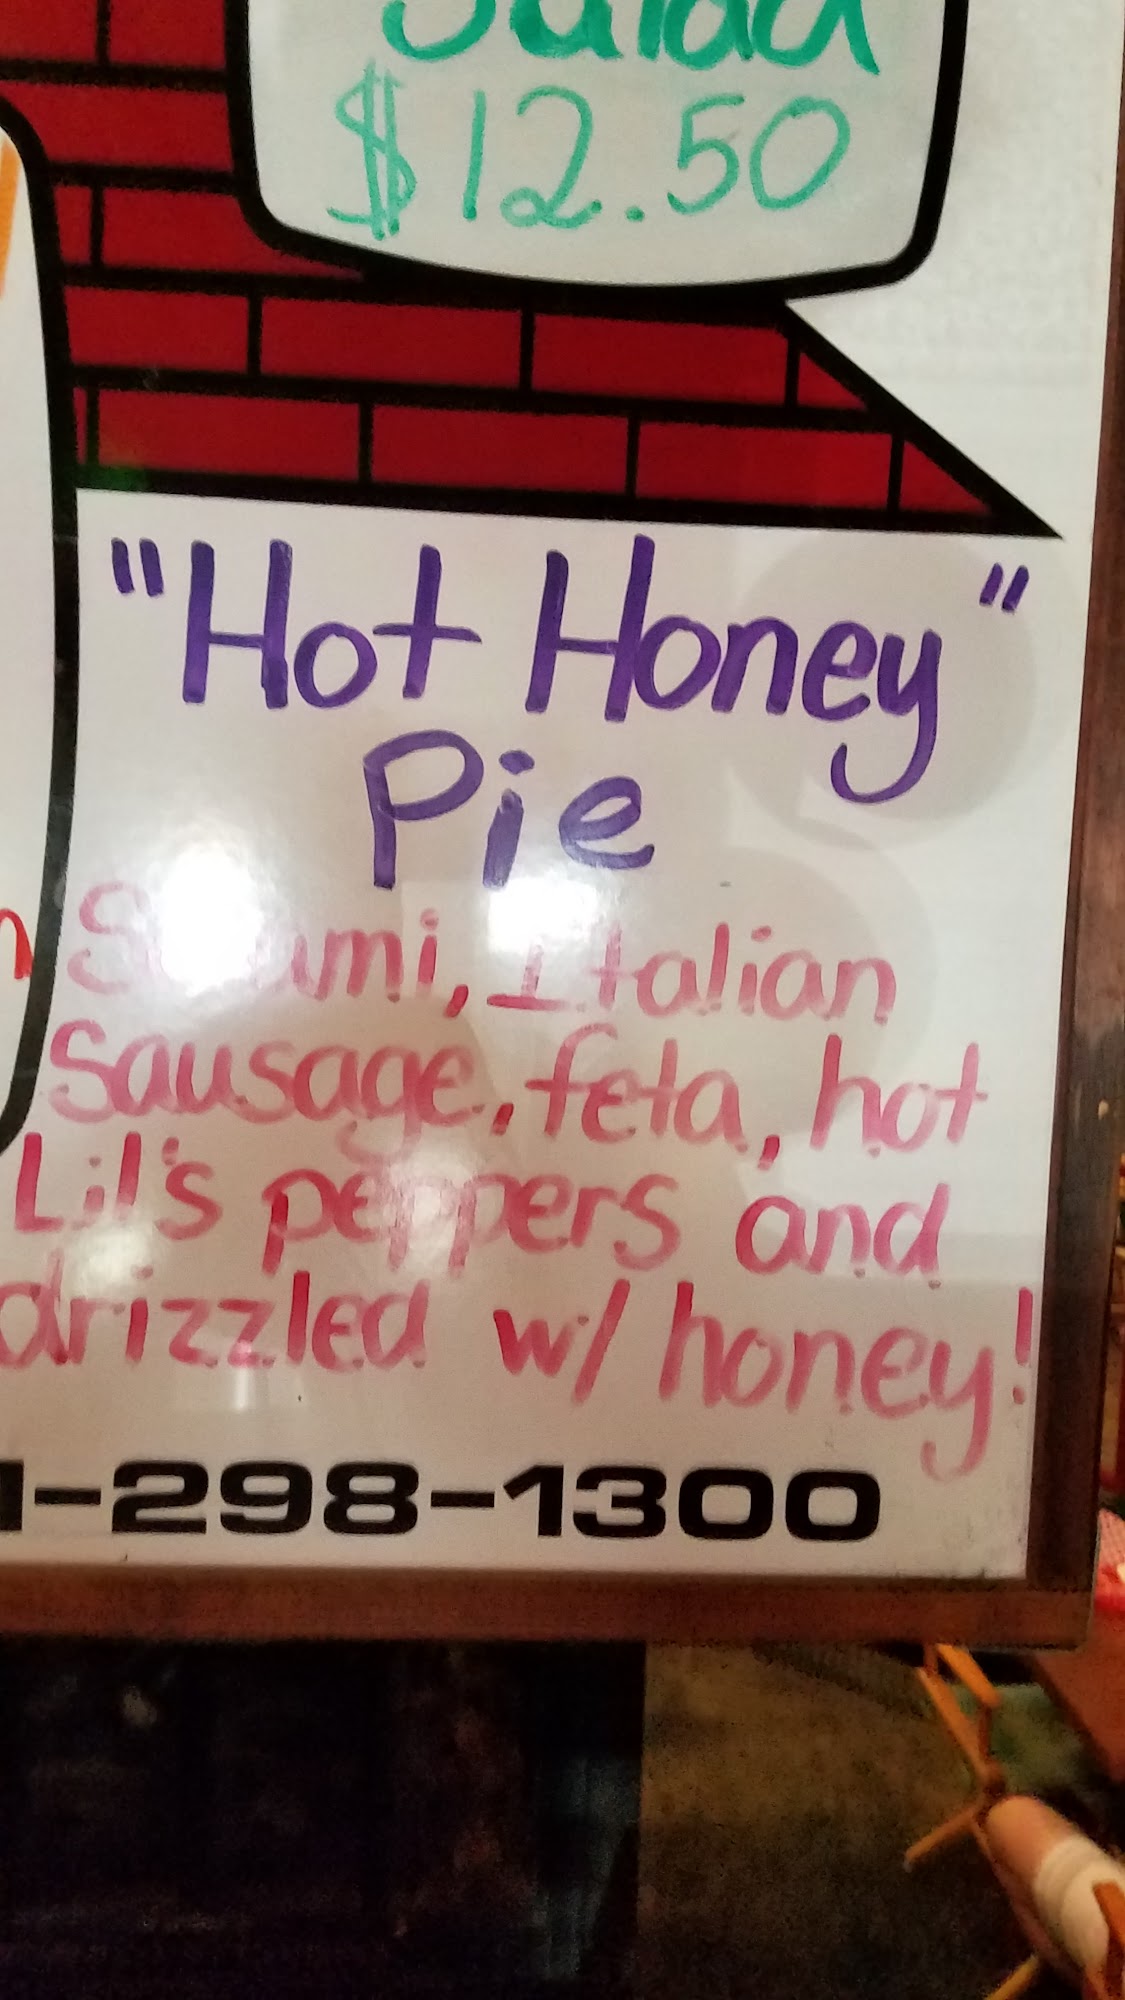 Salad
$12.50
"Hot Honey"
Pie
Salami, Italian
Sausage, feta, hot
Lil's peppers and
drizzled w/ honey!
1-298-1300